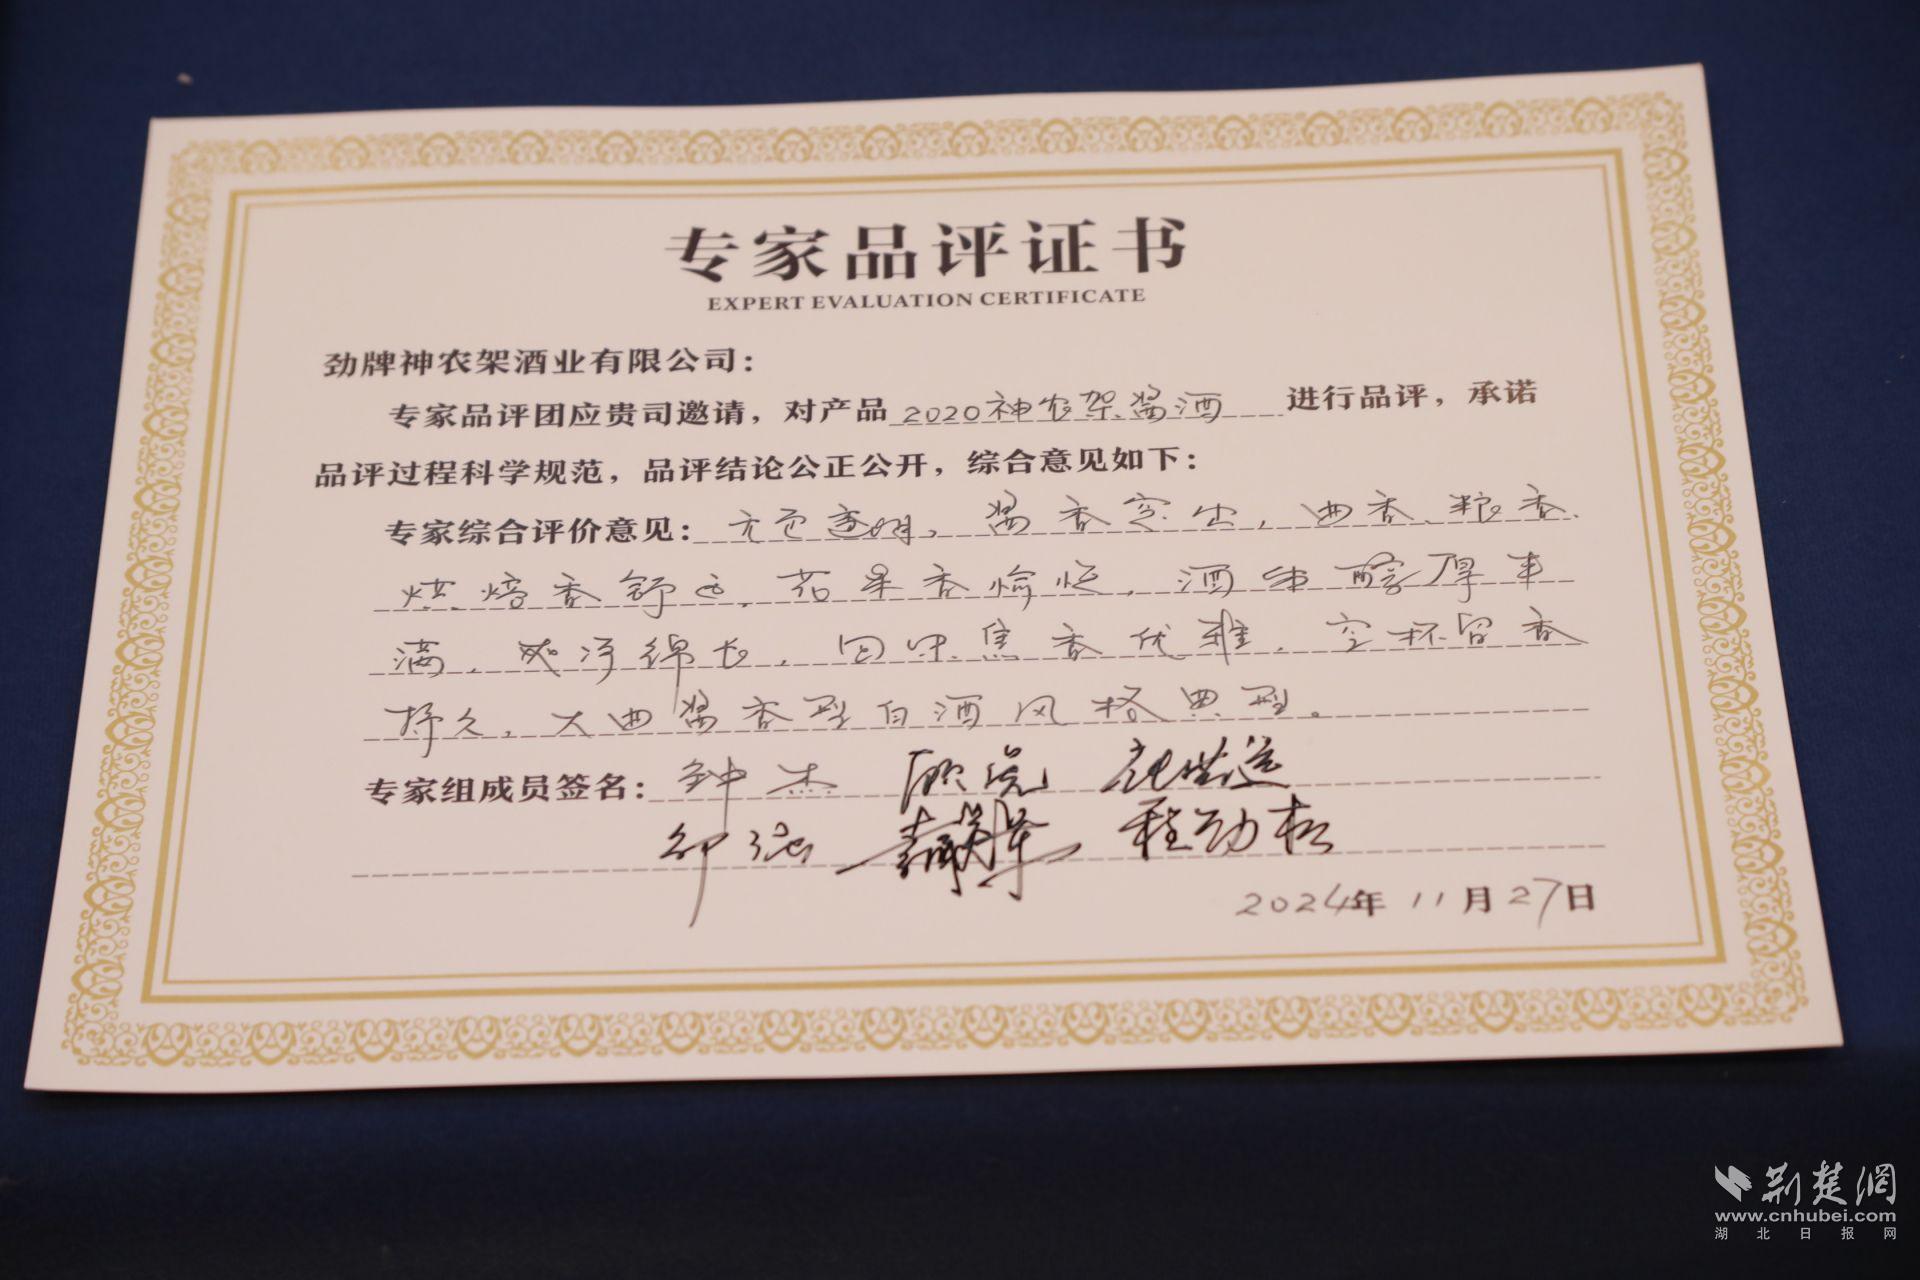 专家品评证书
EXPERT EVALUATION CERTIFICATE
劲牌神农架酒业有限公司：
专家品评团应贵司邀请，对产品 2020神农架酱酒 进行品评，承诺
品评过程科学规范，品评结论公正公开，综合意见如下：
专家综合评价意见：无色透明，酱香突出，曲香、粮香、
烘焙香舒适，花果香愉悦，酒体醇厚丰
满，爽净绵长，回味焦香优雅，空杯留香
持久，大曲酱香型白酒风格典型。
专家组成员签名：钟杰
邹强 程劲松
2024年 11月 27日
荆楚網
www.cnhubei.com
湖北日报网